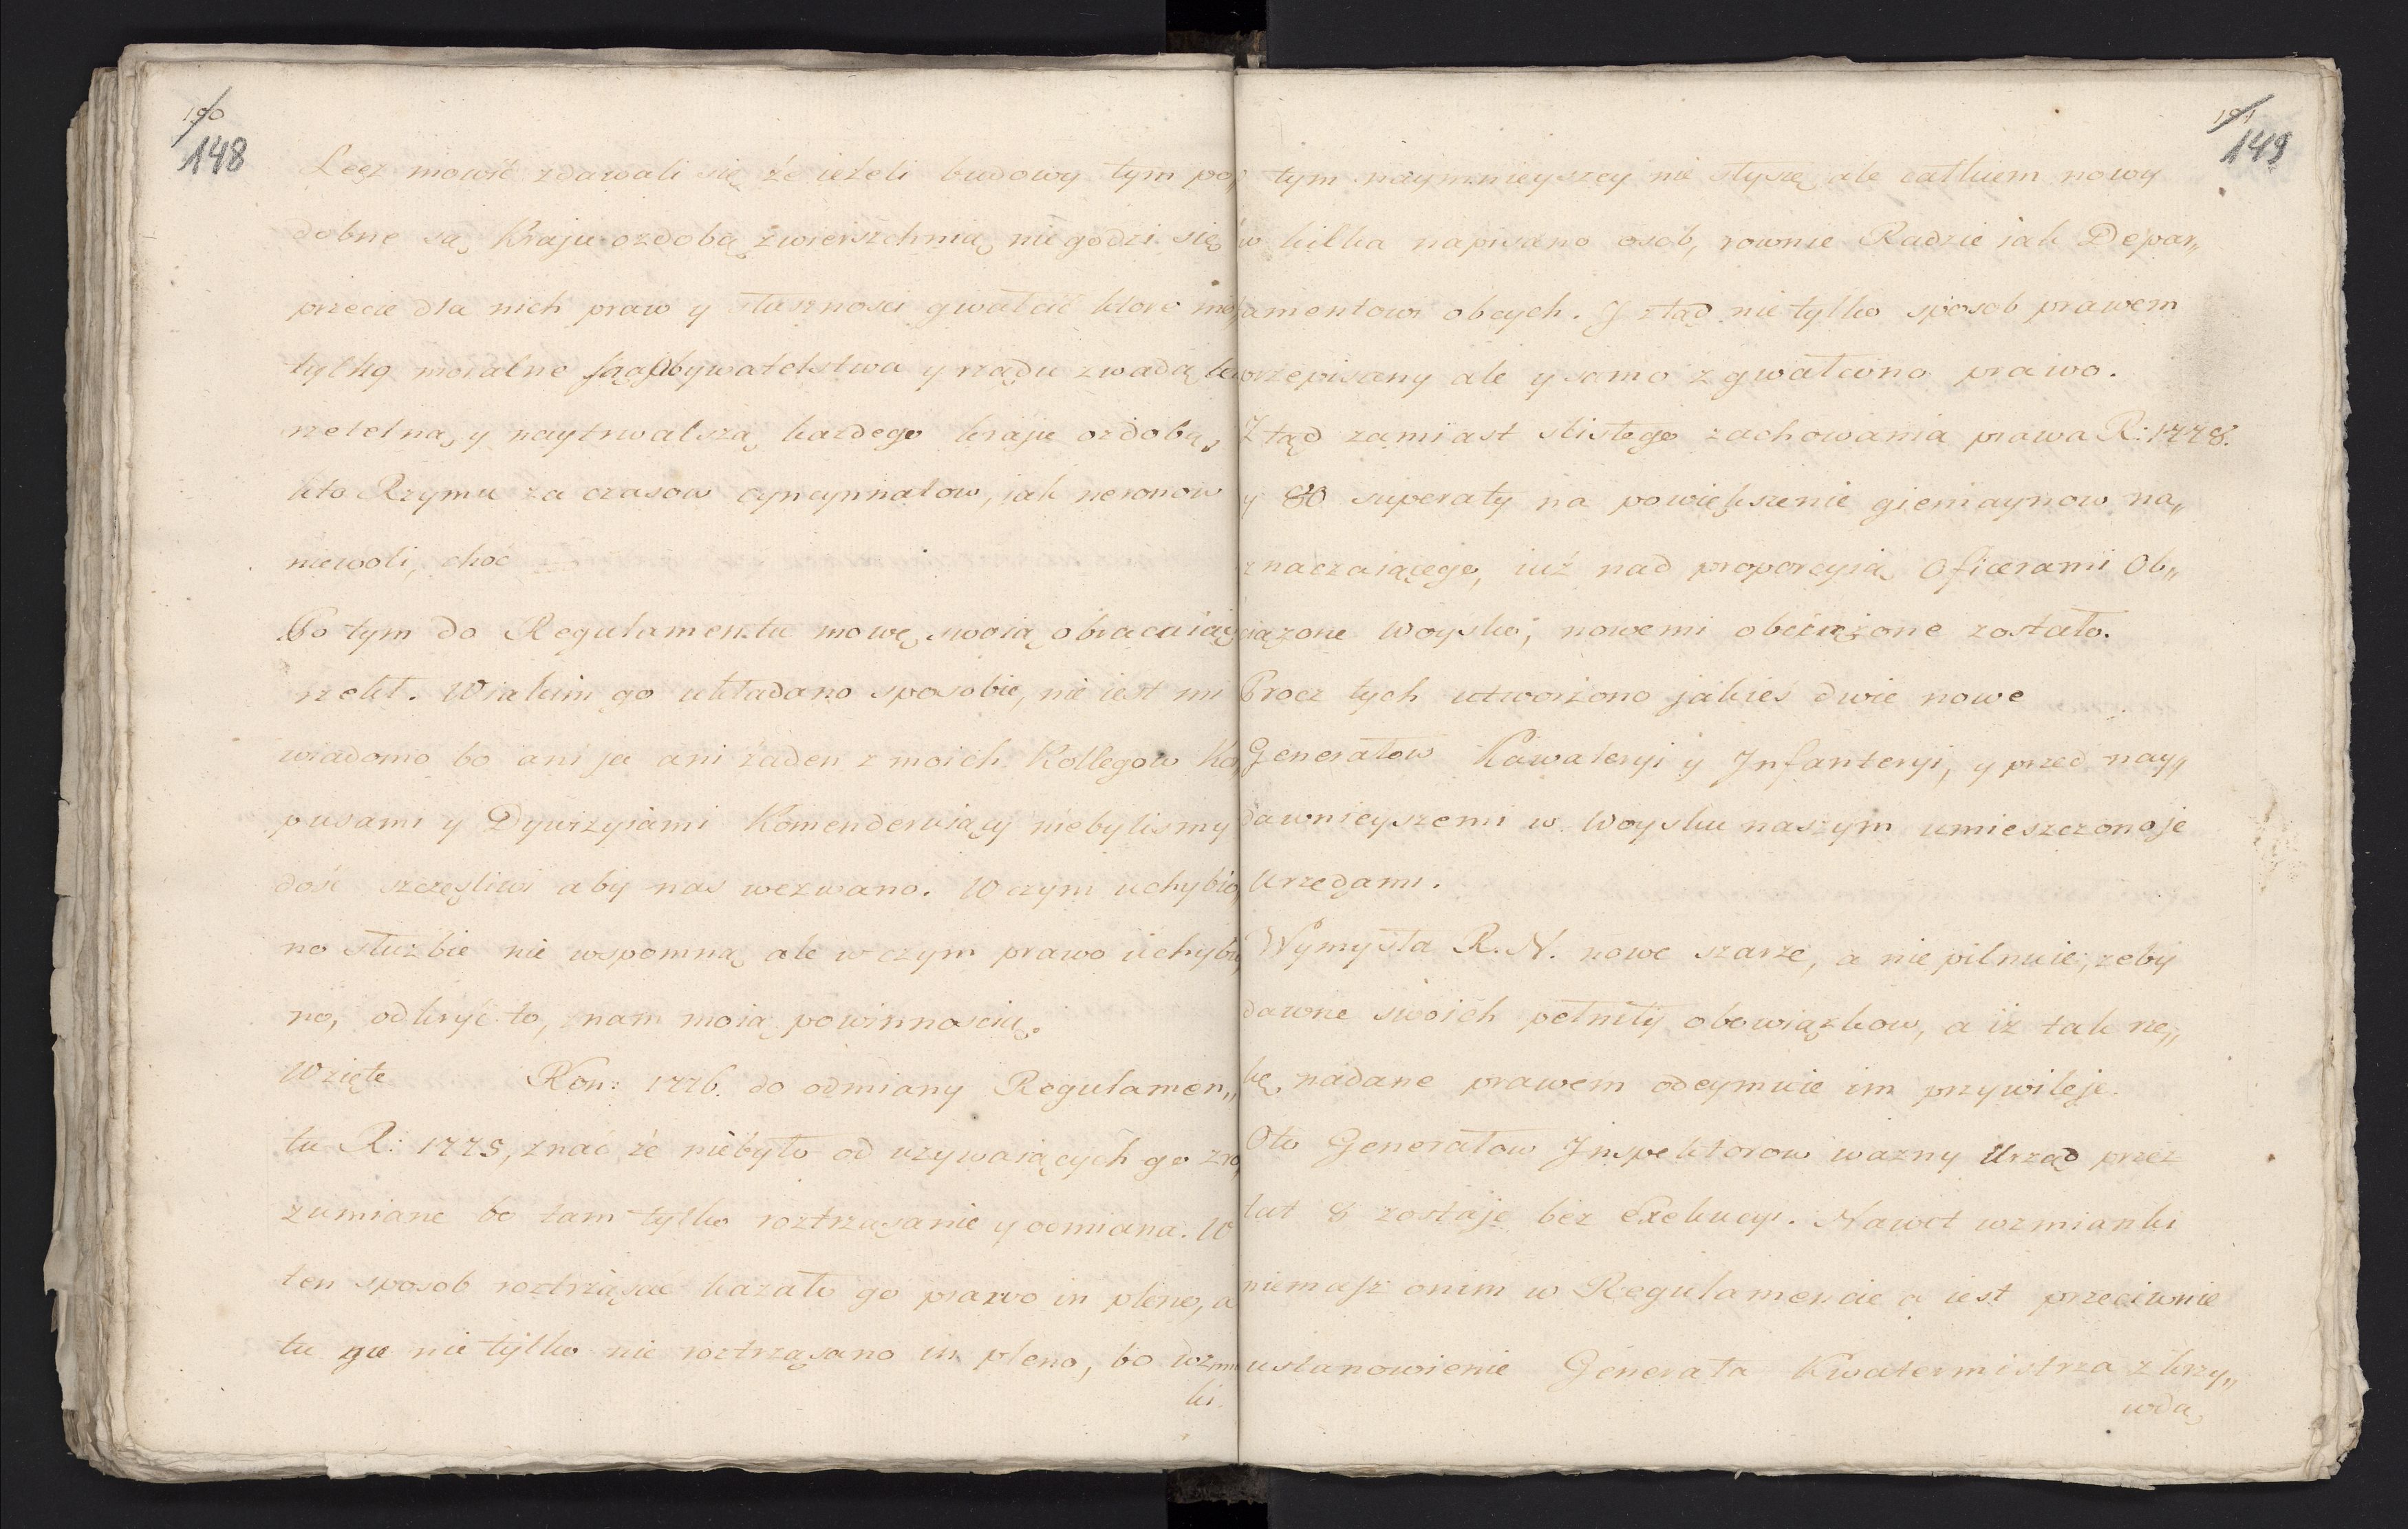 190
148
Lecz mowić zdawali się że ieżeli budowy tym po„
dobne są Kraju ozdobą zwierszchnią nie godzi się
przecie dla nich praw y słuszności gwałcić ktore
tylko moralne są Obywatelstwa y rządu zwadą
rzetelną y naytrwalszą kazdego kraju ozdobą,
kto Rzymu za czasow cyncynnatow, iak neronow
niewoli, choć
Po tym do Regulamentu mowę swoią obracaiąc
rzekł. W iakim go układano sposobie, nie iest mi
wiadomo bo ani ja ani żaden z moich Kollegow Ko
pusami y Dywizyiami Komenderuiący niebylismy
dość szczęśliwi aby nas wezwano. W czym uchybio„
no służbie nie wspomnę ale w czym prawo uchybio„
no, odkryć to, nam moią powinnoscią.
Wzięte Kon: 1776. do odmiany Regulamen„
tu R: 1775, znać że niebyło od uzywaiących go zro„
zumiane bo tam tylko roztrząsanie y odmiana. W
ten sposob roztrząsać kazało go prawo in pleno, a
tu go nie tylko nie roztrząsano in pleno, bo wzmn
ki.
191
149
tym naymnieyszey nie słyszę ale całkiem nowy
w kilka napisano osob, rownie Radzie iak Depar„
amentowi obcych. J ztąd nie tylko sposob prawem
przepisany ale y samo zgwałcono prawo.
Ztąd zamiast scisłego zachowania prawa R: 1778.
y 80 superaty na powiększenie giemaynow na„
znaczaiącego, iuż nad proporcyią Oficerami Ob„
ciązone Woysko, nowemi obciążone zostało.
Procz tych utworzono jakieś dwie nowe
Generałow Kawaleryi y Jnfanteryi, y przed nay„
dawnieyszemi w Woysku naszym umieszczono je
Urzędami.
Wymyśla R. N. nowe szarze, a nie pilnuie, zeby
dawne swoich pełniły obowiązkow, a iż tak rze„
kę, nadane prawem odeymuie im przywileje.
Oto Generałow Jnspektorow wazny Urząd przez
lat 8 zostaje bez exekucyi. Nawet wzmianki
niemasz onim w Regulamencie a iest przeciwnie
ustanowienie Generała Kwatermistrza z krzy„
wdą